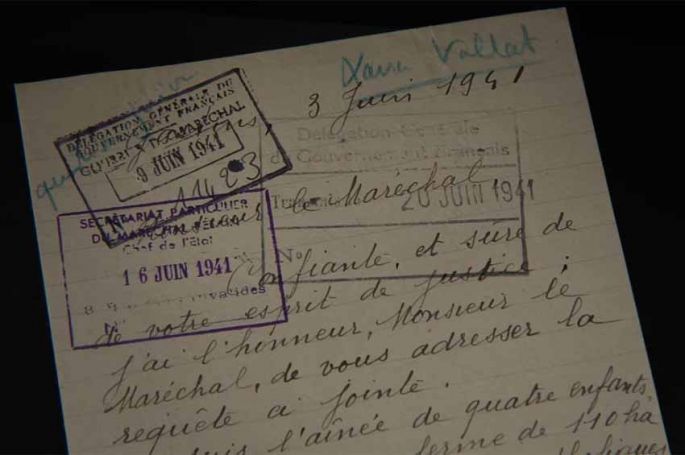 Xavier Vallat
3 Juin 1941
DÉLÉGATION GÉNÉRALE DU
GOUVERNEMENT FRANÇAIS
DU MARÉCHAL
9 JUIN 1941
Délégation Générale
du Gouvernement Français
20 JUIN 1941
No
SECRÉTARIAT PARTICULIER
DU MARÉCHAL PÉTAIN
Chef de l'État
16 JUIN 1941
N°
Monsieur le Maréchal,
Confiante, et sûre de
de votre esprit de justice,
j'ai l'honneur, Monsieur le
Maréchal, de vous adresser la
requête ci jointe.
suis l'aînée de quatre enfants
ferme de 110 ha